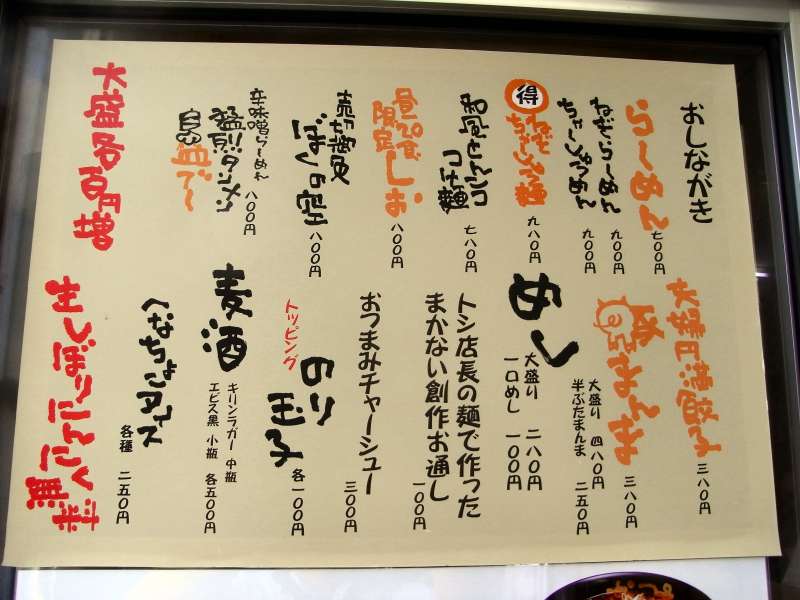 おしながき
らーめん
七〇〇円
ねぎらーめん
九〇〇円
ちゃーしゅうめん
九〇〇円
得
ねぎ
ちゃーしゅう麺
九八〇円
和風とんこつ
つけ麺
七八〇円
昼20食
限定しお
八〇〇円
売切御免
ぼくの空
八〇〇円
辛味噌らーめん
猛烈!!タンメン
八〇〇円
大盛各百円増
夫婦円満餃子
三八〇円
豚まんま
三八〇円
大盛り 四八〇円
半ぶたまんま 二五〇円
めし
大盛り 二八〇円
一口めし 一〇〇円
トシ店長の麺で作った
まかない創作お通し
一〇〇円
おつまみチャーシュー
三〇〇円
トッピング
のり
玉子
各一〇〇円
麦酒
キリンラガー 中瓶
エビス黒 小瓶 各五〇〇円
へなちょこアイス
各種 二五〇円
生しぼりにんにく無料